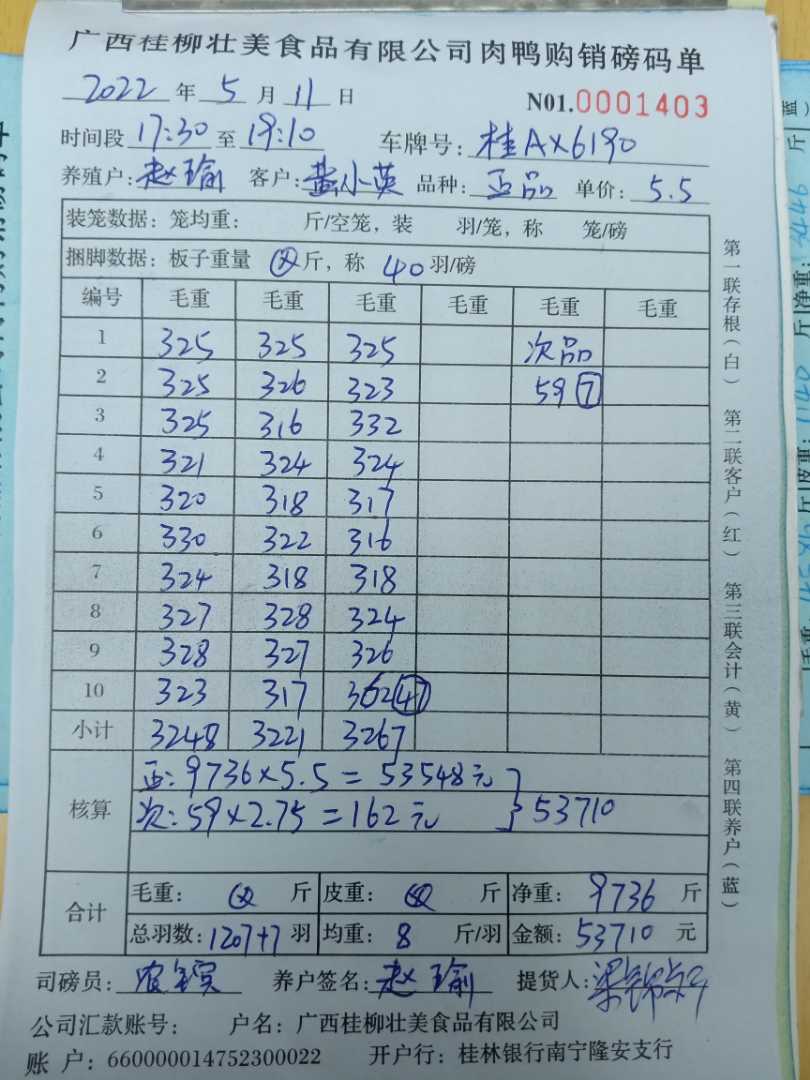 广西桂柳壮美食品有限公司肉鸭购销磅码单
2022 年 5 月 11 日 N01.0001403
时间段 17:30 至 19:10 车牌号: 桂AX6190
养殖户: 赵瑜 客户: 黄小英 品种: 正品 单价: 5.5
装笼数据: 笼均重: 斤/空笼, 装 羽/笼, 称 笼/磅
捆脚数据: 板子重量 斤, 称 40 羽/磅
编号 毛重 毛重 毛重 毛重 毛重 毛重
1 325 325 325 次品
2 325 326 323 59 7
3 325 316 332
4 321 324 324
5 320 318 317
6 330 322 316
7 324 318 318
8 327 328 324
9 328 327 326
10 323 317 362 47
小计 3248 3221 3267
核算
正: 9736×5.5=53548元
次: 59×2.75=162元 } 53710
合计
毛重: 斤 皮重: 斤 净重: 9736 斤
总羽数: 1207+7 羽 均重: 8 斤/羽 金额: 53710 元
司磅员: 养户签名: 赵瑜 提货人:
公司汇款账号: 户名: 广西桂柳壮美食品有限公司
账 户: 660000014752300022 开户行: 桂林银行南宁隆安支行
第一联存根(白)
第二联客户(红)
第三联会计(黄)
第四联养户(蓝)